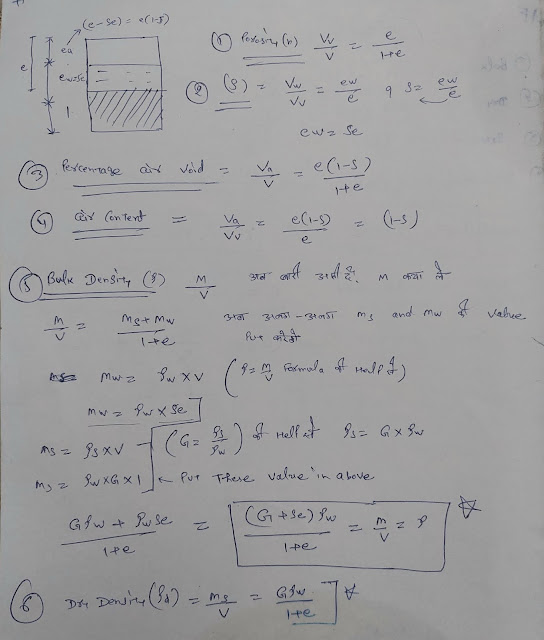 (e-Se) = e(1-S)
e
ea
ew=Se
1
① Porosity (n) Vv/V = e/1+e
② (S) = Vw/Vv = ew/e q S= ew/e
ew = Se
③ Percentage air void = Va/V = e(1-S)/1+e
④ air content = Va/Vv = e(1-S)/e = (1-S)
⑤ Bulk Density (ρ) M/V अब बारी आती है, M क्या ले
M/V = Ms+Mw/1+e अब अलग-अलग ms and mw की value
Put करेगे
mw = ρw×V (ρ= m/V Formala की Help से)
mw = ρw × Se
ms = ρs×V (G= ρs/ρw) की Help से ρs= G×ρw
ms = ρw×G×1 ← Put These value in above
Gρw + ρwSe/1+e = (G+Se)ρw/1+e = m/V = ρ
⑥ Dry Density (ρd) = ms/V = Gρw/1+e